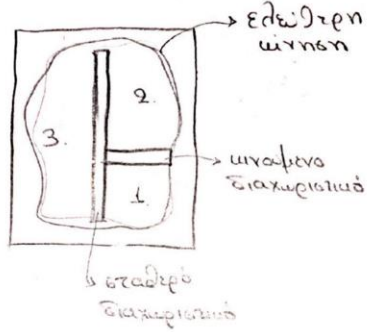 ελεύθερη
κίνηση
2.
3.
κινούμενο
διαχωριστικό
1.
σταθερό
διαχωριστικό